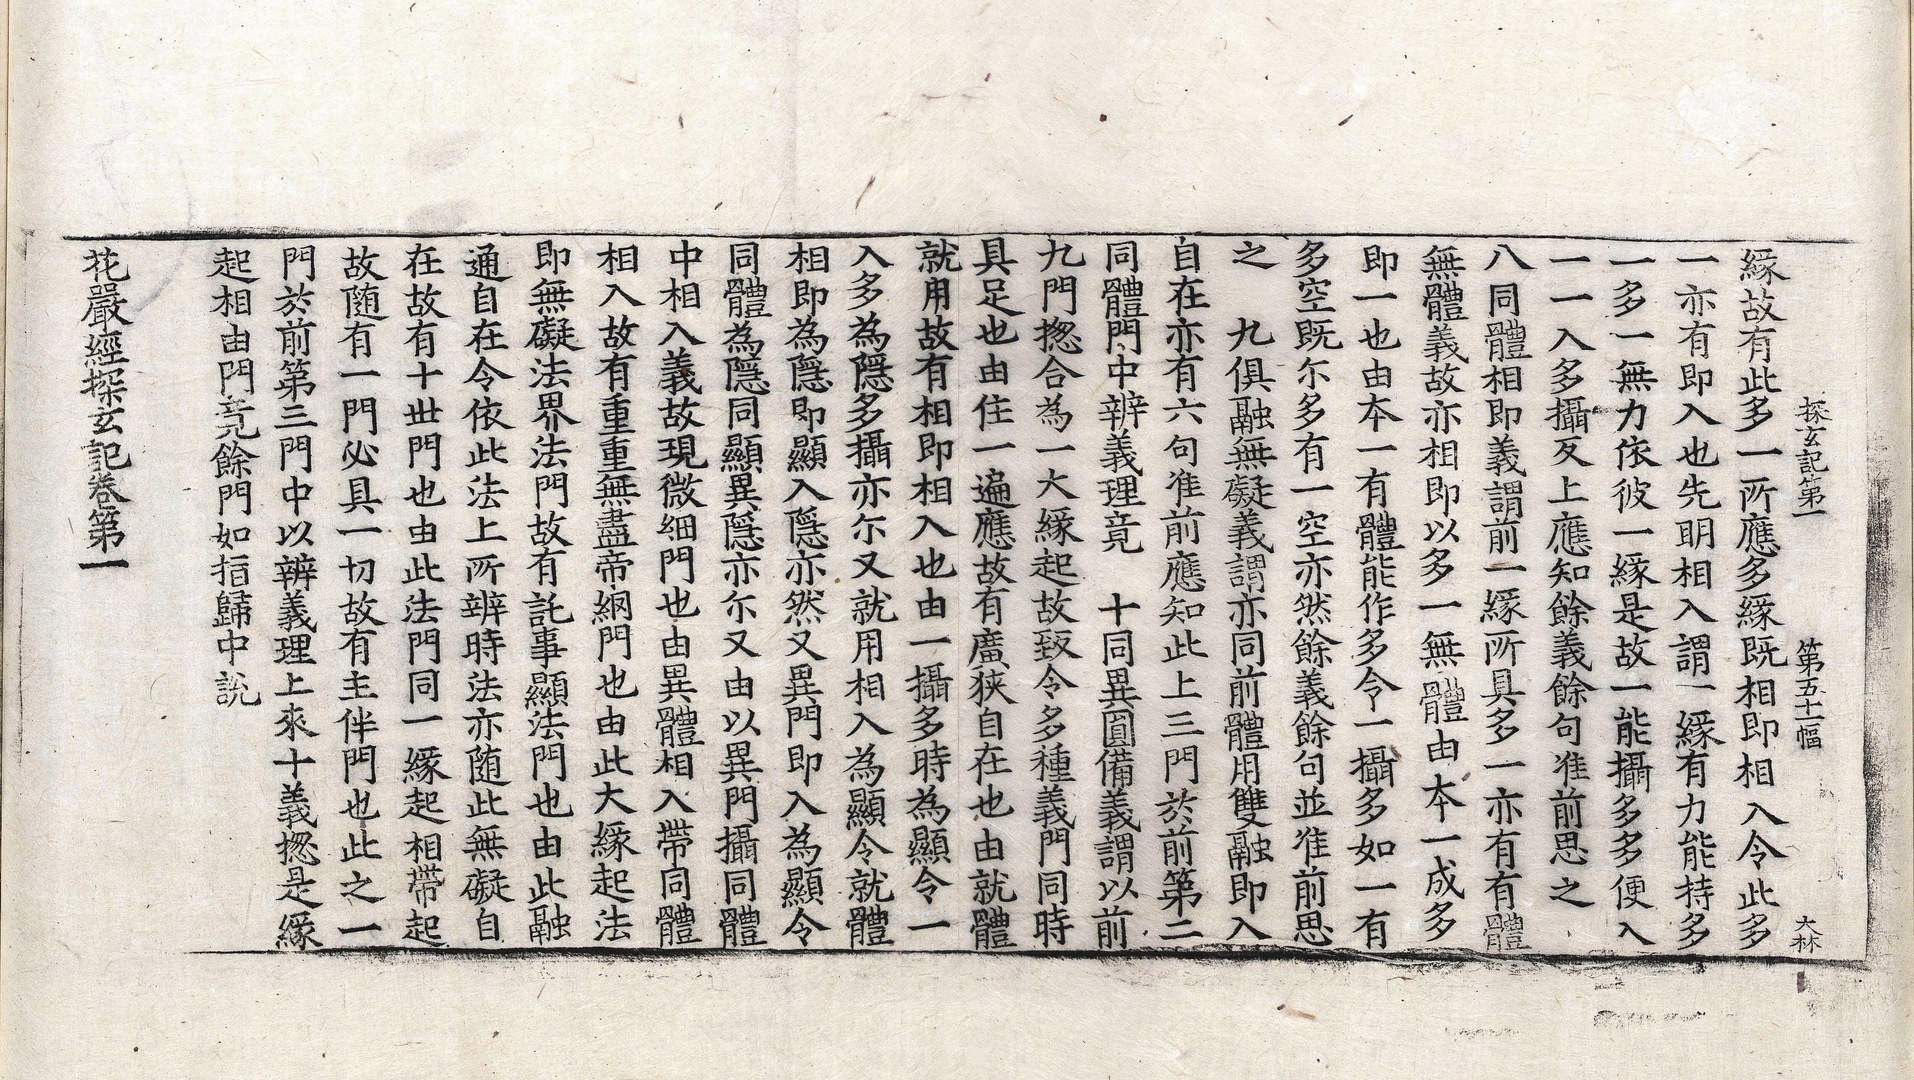 探玄記第一　第五十一幅　大林
緣故有此多一所應多緣既相即相入令此多
一亦有即入也先明相入謂一緣有力能持多
一多一無力依彼一緣是故一能攝多多便入
一一入多攝反上應知餘義餘句准前思之
八同體相即義謂前一緣所具多一亦有有體
無體義故亦相即以多一無體由本一成多
即一也由本一有體能作多令一攝多如一有
多空既尓多有一空亦然餘義餘句並准前思
之　九俱融無礙義謂亦同前體用雙融即入
自在亦有六句准前應知此上三門於前第二
同體門中辨義理竟　十同異圓備義謂以前
九門揔合為一大緣起故致令多種義門同時
具足也由住一遍應故有廣狹自在也由就體
就用故有相即相入也由一攝多時為顯令一
入多為隱多攝亦尓又就用相入為顯令就體
相即為隱即顯入隱亦然又異門即入為顯令
同體為隱同顯異隱亦尓又由以異門攝同體
中相入義故現微細門也由異體相入帶同體
相入故有重重無盡帝網門也由此大緣起法
即無礙法界法門故有託事顯法門也由此融
通自在令依此法上所辨時法亦随此無礙自
在故有十世門也由此法門同一緣起相帶起
故随有一門必具一切故有主伴門也此之一
門於前第三門中以辨義理上來十義揔是緣
起相由門竟餘門如指歸中説
花嚴經探玄記卷第一